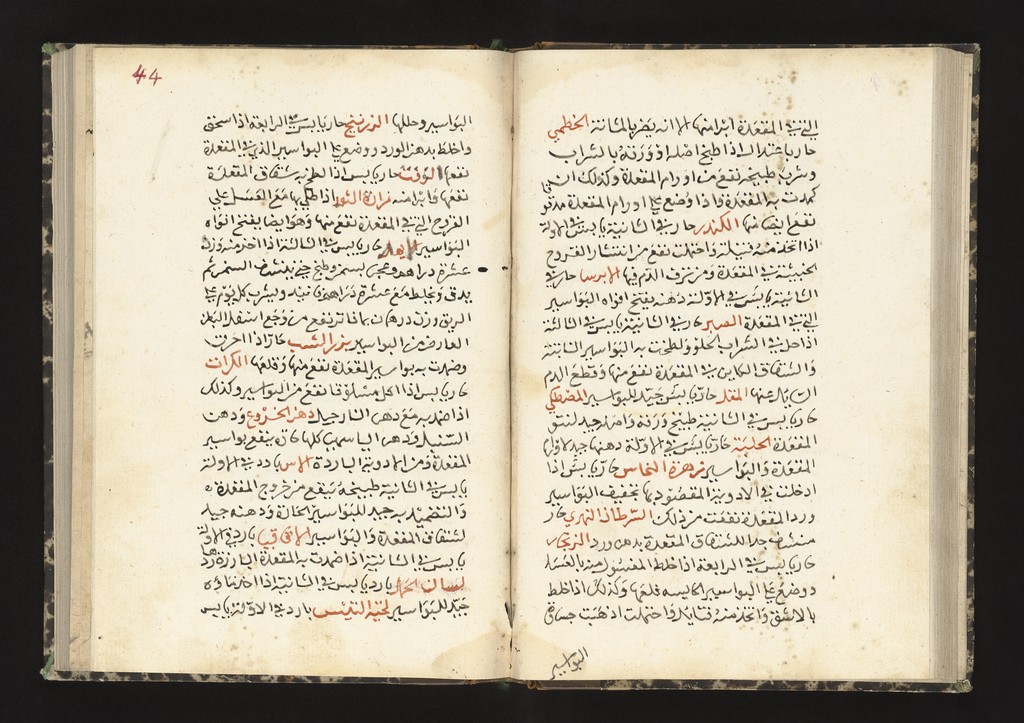 التي في المقعدة ابرامنها الا انه يضر بالمثانة الخطمي
حار باعتدال اذا طبخ اصله او ورقه بالشراب
وشرب طبيخه نفع من اورام المقعدة وكذلك ان
كمدت به المقعدة واذا وضع على اورام المقعدة مدقوقا
نفع ايضا منها الكندر حار في الثانية يابس في الاولة
اذا اتخذ منه فتيلة واحتملت نفع من انتشار القروح
الخبيثة في المقعدة ومن نزف الدم فيها الايرسا حار في
الثانية يابس في الاولة دهنه يفتح افواه البواسير
التي في المقعدة الصبر حار في الثانية يابس في الثالثة
اذا حل في الشراب الحلو ولطخت به البواسير الناتئة
والشقاق الكاين في المقعدة نفع منها وقطع الدم
السايل عنها المقل حار يابس جيد للبواسير المصطكي
حار يابس في الثانية طبيخ ورقه واصله جيد لنتو
المقعدة الحلبة حار يابس في الاولة دهنها جيد لاورام
المقعدة والبواسير زهرة النحاس حار يابس اذا
ادخلت في الادوية المقصود بها تجفيف البواسير
ورد المقعدة نفعت من ذلك السرطان النهري حار
منشف جلا للشقاق المقعدة بدهن ورد الزنجار
حار يابس في الرابعة اذا خلط المغسول منه بالعسل
ووضع على البواسير الجاسية قلعها وكذلك اذا خلط
بالاشق واتخذ منه فتايل واحتملت اذهبت جسا في
البواسير
44
البواسير وحللها الزرنيخ حار يابس في الرابعة اذا سحق
واخلط بدهن الورد ووضع على البواسير الذي في المقعدة
نفعها الزفت حار يابس اذا لطخ به شقاق المقعدة
نفعها وابرا منه مرارة الثور اذا طلي بها مع العسل على
القروح التي في المقعدة نفع منها وهو ايضا يفتح افواه
البواسير حار يابس في الثالثة اذا اخذ منه وزن
عشرة دراهم وعجن بسمن وطبخ حتى ينشف السمن ثم
يدق ويخلط مع عشرة دراهم فانيد ويشرب كل يوم على
الريق وزن درهمان بما فاتر نفع من وجع اسفل البدن
العارض من البواسير بزر الشبت حار اذا احرق
وضمدت به بواسير المقعدة نفع منها وقلعها الكراث
حار يابس اذا اكل مسلوقا نفع من البواسير وكذلك
اذا ضمد به مع دهن النارجيل دهن الخروع ودهن
السنبل ودهن الياسمين كلها حارة ينفع بواسير
المقعدة ومن الادوية الباردة الاس بارد في الاولة
يابس في الثانية طبيخه ينفع من خروج المقعدة
والتضميد به جيد للبواسير الحارة ودهنه جيد
لشقاق المقعدة والبواسير الاقاقيا بارد في الاولة
يابس في الثانية اذا ضمدت به المقعدة البارزة ردها
لسان الحمل بارد يابس في الثانية اذا اخذ ماؤه
جيد للبواسير لحية التيس بارد في الاولة يابس